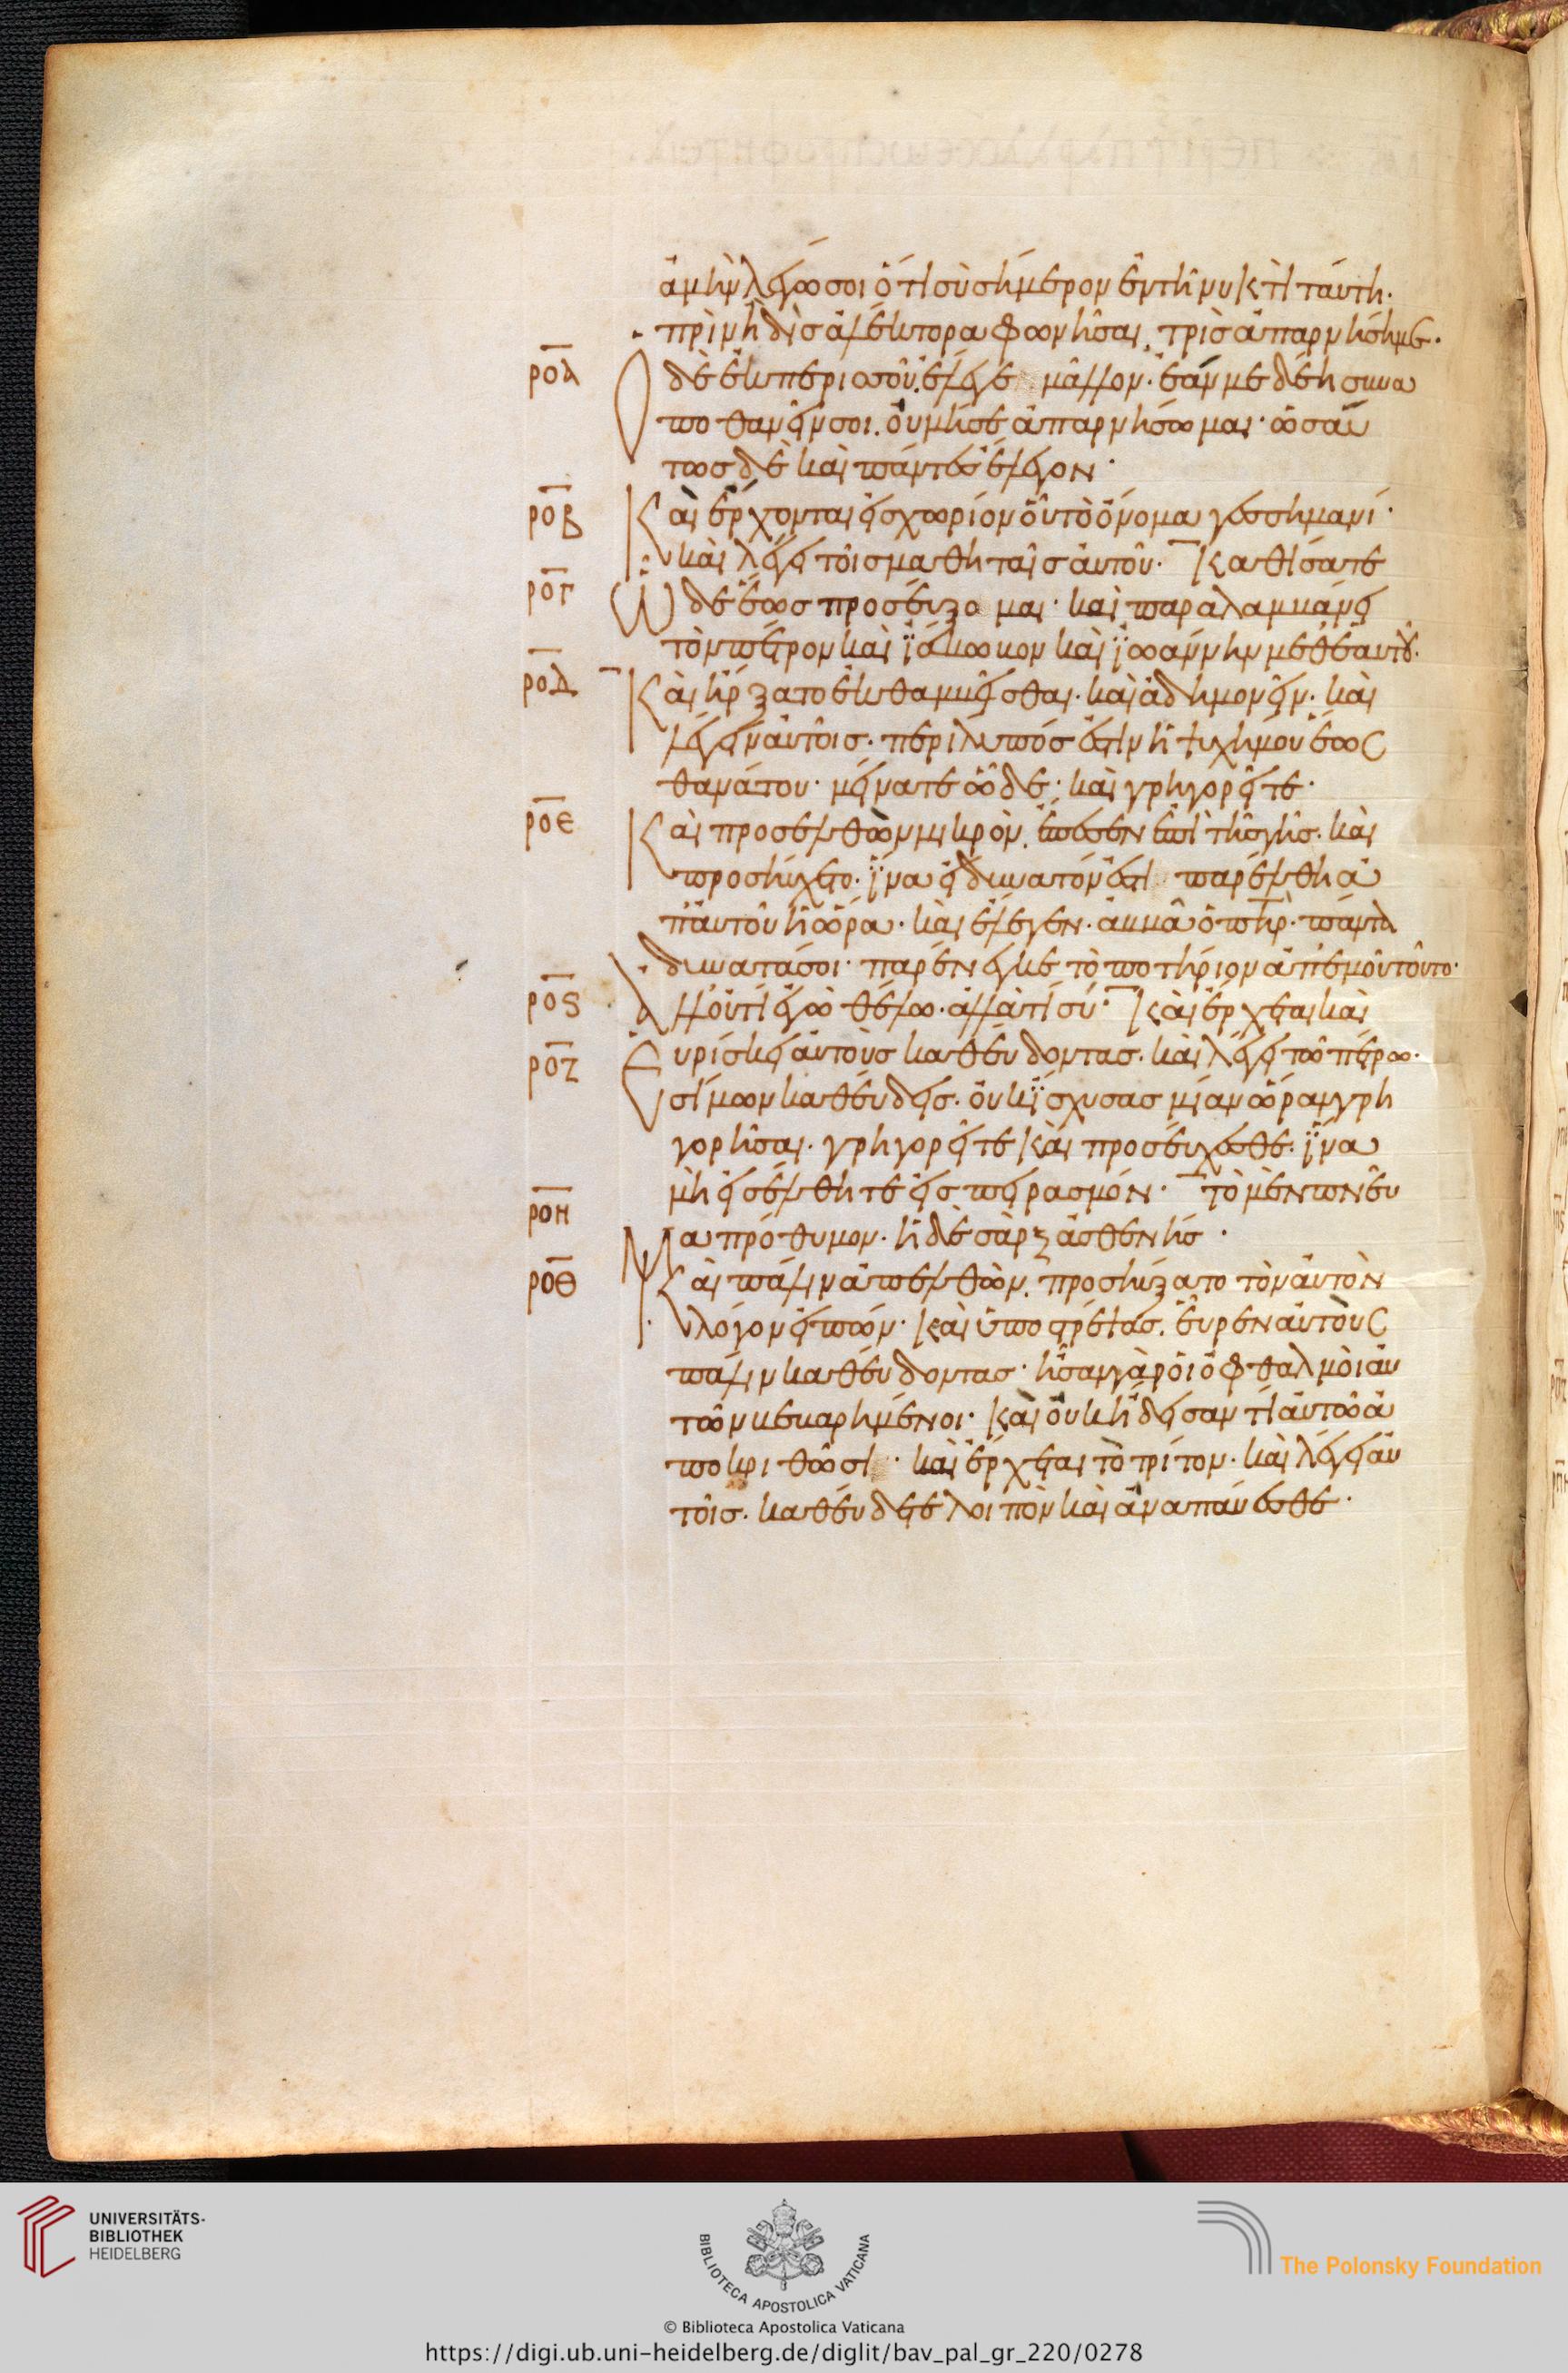 ἀμὴν λέγω σοι ὅτι σὺ σήμερον ἐν τῆ νυκτὶ ταύτη·
πρὶν ἢ δὶς ἀλέκτορα φωνῆσαι, τρὶς ἀπαρνήση με·
ρο̅α̅ Ὁ δὲ ἐκπερισσοῦ ἔλεγε μᾶλλον· ἐάν με δέη συνα
ποθανεῖν σοι. οὐ μή σε ἀπαρνήσωμαι· ὡσαύ
τως δὲ καὶ πάντες ἔλεγον·
ρο̅β̅ Καὶ ἔρχονται εἰς χωρίον οὗ τὸ ὄνομα γεσσημανί·
καὶ λέγει τοῖς μαθηταῖς αὐτοῦ· Καθίσατε
ρο̅γ̅ ὧδε ἕως προσεύξομαι· καὶ παραλαμβάνει
τὸν πέτρον καὶ ϊάκωβον καὶ ϊωάννην μεθεαυτοῦ·
ρο̅δ̅ Καὶ ἤρξατο ἐκθαμβεῖσθαι· καὶ ἀδημονεῖν· καὶ
λέγειν αὐτοῖς· περίλυπός ἐστιν ἡ ψυχή μου ἕως
θανάτου· μείνατε ὧδε· καὶ γρηγορεῖτε·
ρο̅ε̅ Καὶ προσελθὼν μικρὸν, ἔπεσεν ἐπὶ τῆς γῆς· καὶ
προσηύχετο· ἵνα εἰ δυνατόν ἐστι παρέλθη ἀ
π᾽ αὐτοῦ ἡ ὥρα· καὶ ἔλεγεν· ἀββᾶ ὁ π̅η̅ρ̅· πάντα
δυνατά σοι· παρένεγκε τὸ ποτήριον ἀπ᾽ ἐμοῦ τοῦτο·
ρο̅ς̅ ἀλλ᾽ οὐ τί ἐγὼ θέλω· ἀλλὰ τί σύ· Καὶ ἔρχεται καὶ
ρο̅ζ̅ Εὑρίσκει αὐτοὺς καθεύδοντας· καὶ λέγει τῶ πέτρω·
σίμων καθεύδεις· οὐκ ἴσχυσας μίαν ὥραν γρη
γορῆσαι· γρηγορεῖτε καὶ προσεύχεσθε· ἵνα
μὴ εἰσέλθητε εἰς πειρασμόν· τὸ μὲν πνεῦ
ρο̅η̅ Μα πρόθυμον· ἡ δὲ σὰρξ ἀσθενής·
ρο̅θ̅ Καὶ πάλιν ἀπελθὼν, προσηύξατο τὸν αὐτὸν
λόγον εἰπών· καὶ ὑποστρέψας, εὗρεν αὐτοὺς
πάλιν καθεύδοντας· ἦσαν γὰρ οἱ ὀφθαλμοὶ αὐ
τῶν βεβαρημένοι· καὶ οὐκ ἤδεισαν τί αὐτῶ ἀ
ποκριθῶσι· καὶ ἔρχεται τὸ τρίτον· καὶ λέγει αὐ
τοῖς· καθεύδετε λοιπὸν καὶ ἀναπαύεσθε·
UNIVERSITÄTS-
BIBLIOTHEK
HEIDELBERG
BIBLIOTECA APOSTOLICA VATICANA
The Polonsky Foundation
© Biblioteca Apostolica Vaticana
https://digi.ub.uni-heidelberg.de/diglit/bav_pal_gr_220/0278